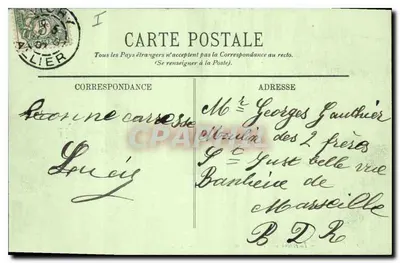 VICHY
ALLIER
CARTE POSTALE
Tous les Pays étrangers n'acceptent pas la Correspondance au recto.
(Se renseigner à la Poste).
CORRESPONDANCE
ADRESSE
Bonne caresse
Mr Georges Gauthier
des 2 frères
St Just belle vue
Banlieue de
Marseille
B D R